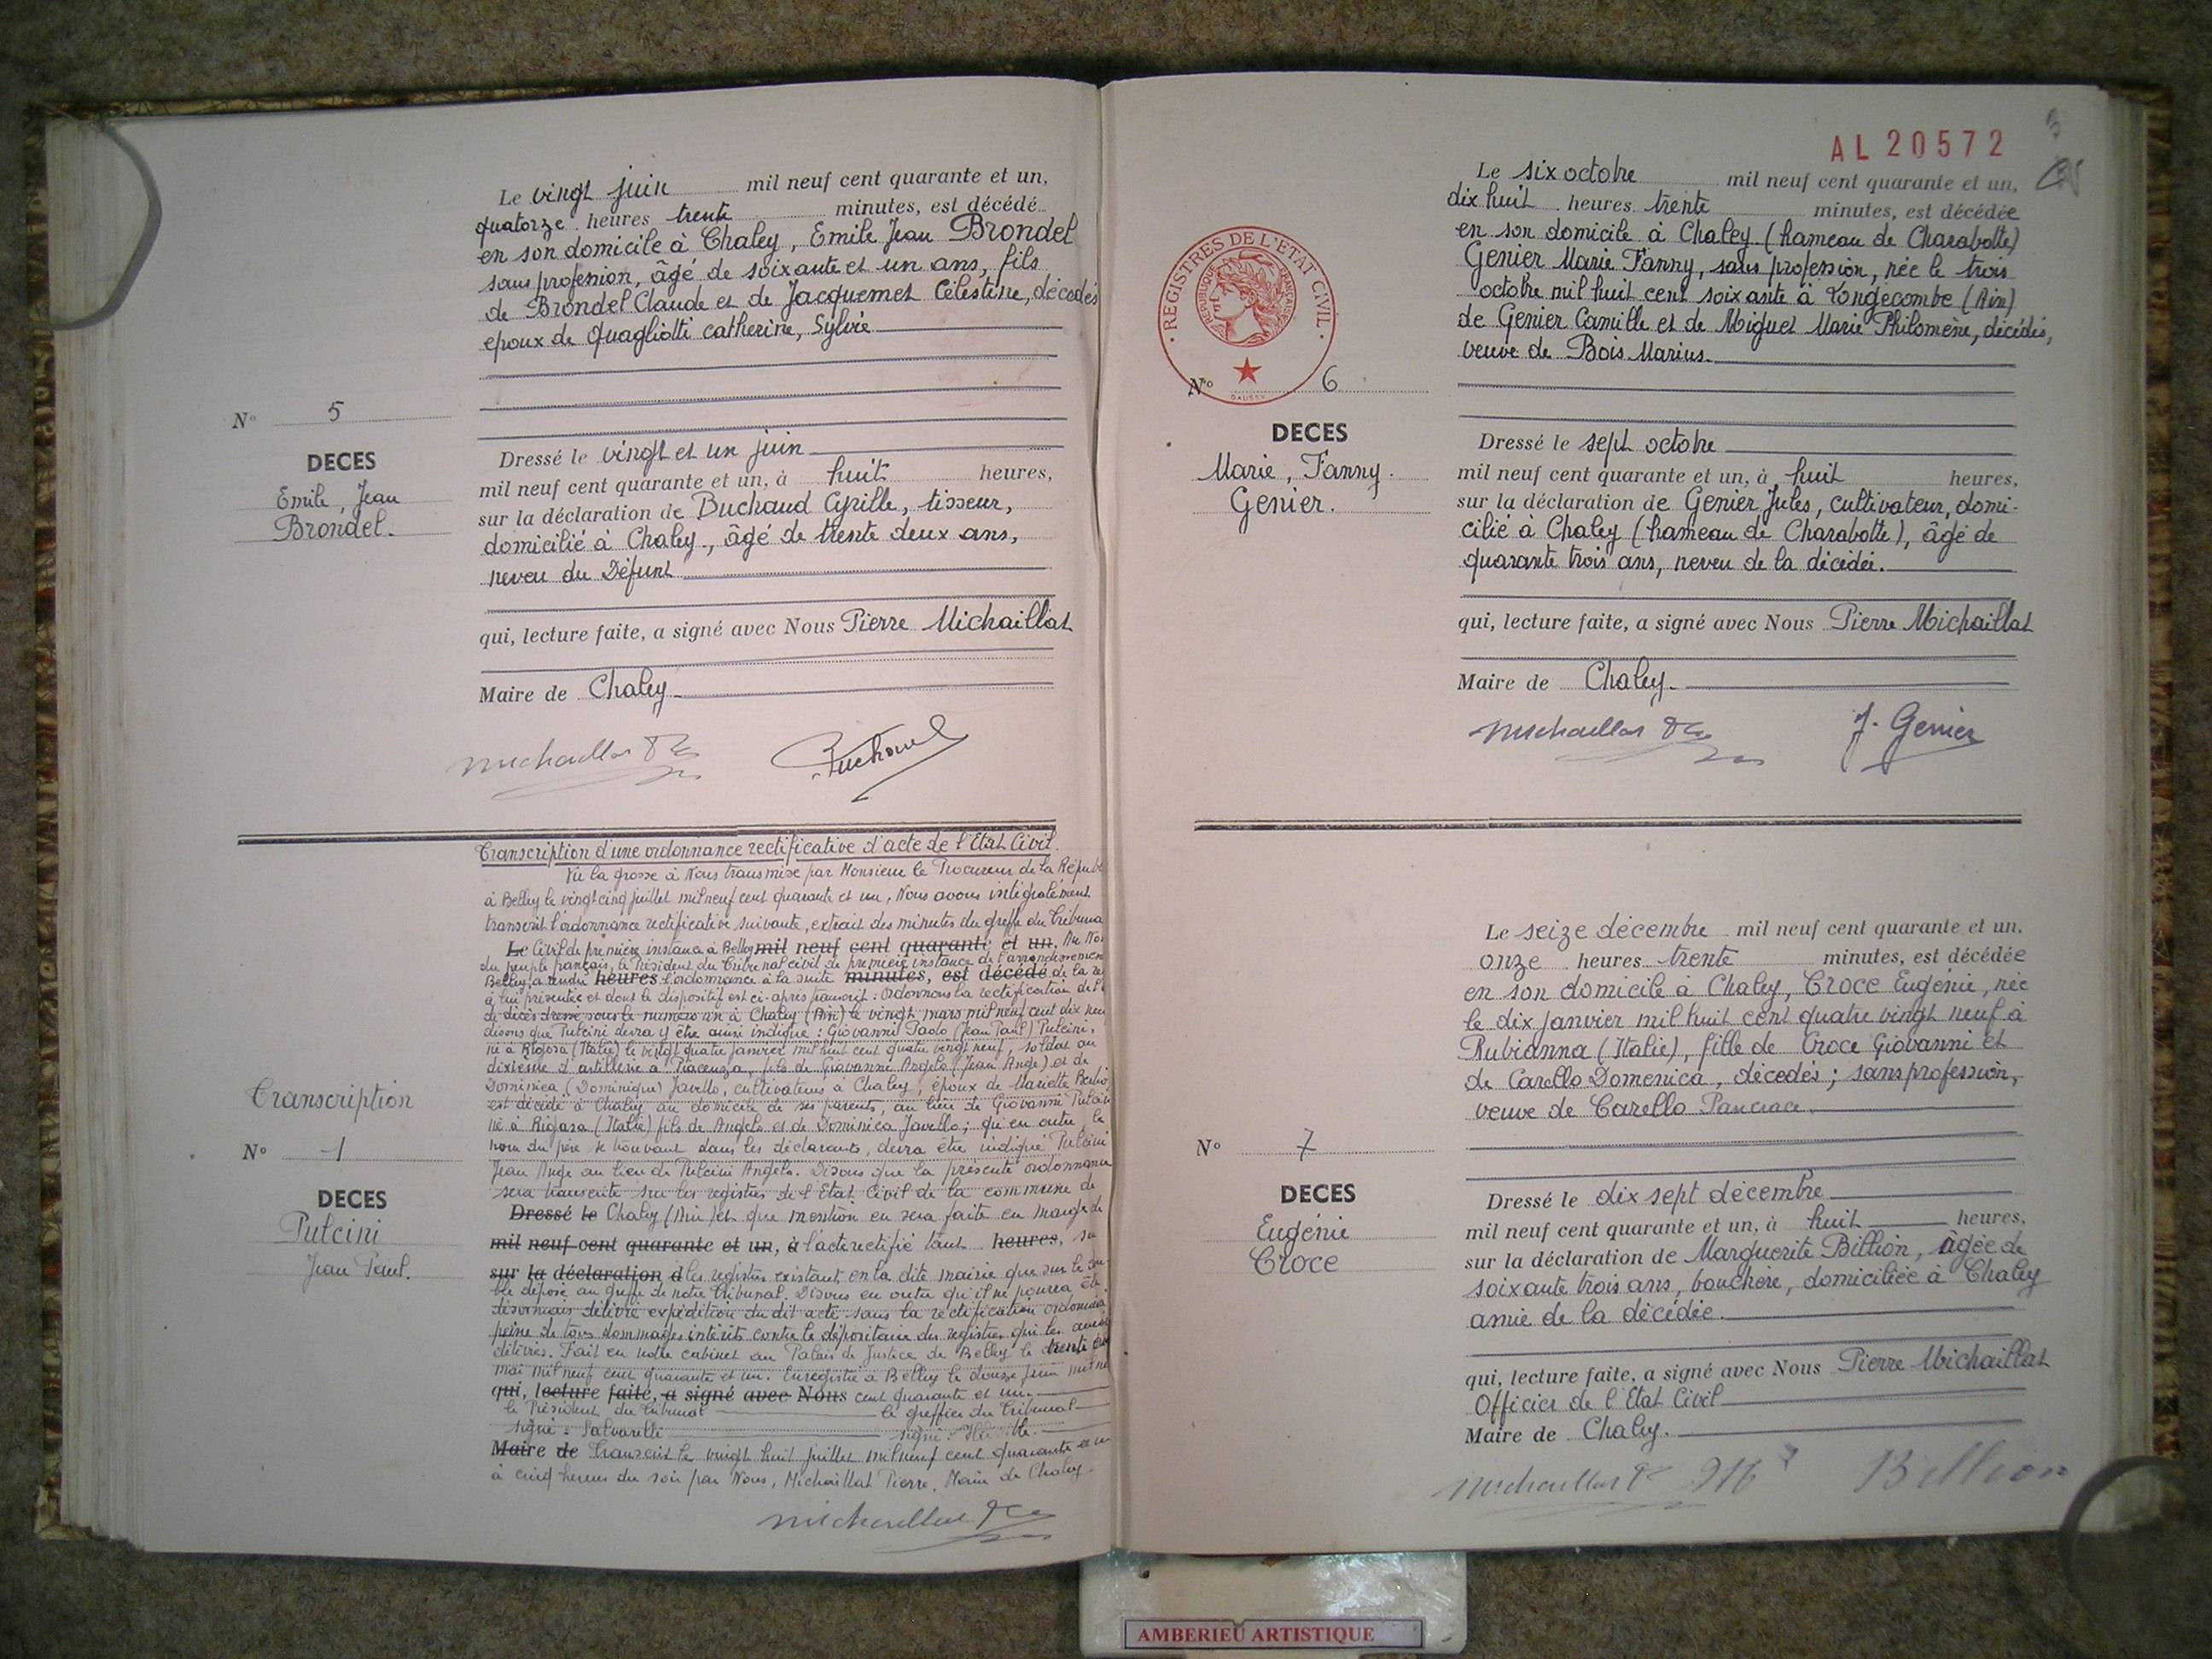 Le vingt juin mil neuf cent quarante et un,
quatorze heures trente minutes, est décédé
en son domicile à Chaley, Emile Jean Brondel
sans profession, âgé de soixante et un ans, fils
de Brondel Claude et de Jacquemet Célestine, décédés
époux de Quagliotti catherine, Sylvie
N° 5
DECES
Emile, Jean
Brondel.
Dressé le vingt et un juin
mil neuf cent quarante et un, à huit heures,
sur la déclaration de Buchaud Cyrille, tisseur,
domicilié à Chaley, âgé de trente deux ans,
neveu du Défunt
qui, lecture faite, a signé avec Nous Pierre Michaillat
Maire de Chaley
Michaillat Buchaud
Transcription d'une ordonnance rectificative d'acte de l'Etat Civil.
Vu la grosse à Nous transmise par Monsieur le Procureur de la Répub
à Belley le vingt cinq juillet mil neuf cent quarante et un, Nous avons intégralement
transcrit l'ordonnance rectificative suivante, extrait des minutes du greffe du Tribuna
Le Civil de première instance à Belley mil neuf cent quarante et un, Au No
du peuple français, le Président du Tribunal civil de première instance de l'arrondissemen
Belley, a rendu heures l'ordonnance à la suite minutes, est décédé de la re
à lui présentée et dont le dispositif est ci-après transcrit : Ordonnons la rectification de l'
de décès dressé sous le numéro un à Chaley (Ain) le vingt mars mil neuf cent dix neu
disons que Pulcini devra y être ainsi indiqué : Giovanni Paolo (Jean Paul) Pulcini,
né à Rigosa (Italie) le vingt quatre janvier mil huit cent quatre vingt neuf, soldat au
dixième d'artillerie à Piacenza, fils de Giovanni Angelo (Jean Ange) et de
Dominica (Dominique) Javello, cultivateurs à Chaley, époux de Mariette
est décédé à Chaley au domicile de ses parents, au lieu de Giovanni Pulcin
né à Rigasa (Italie) fils de Angelo et de Dominica Javello; qu'en outre, le
nom du père se trouvant dans les déclarants, devra être indiqué Pulcini
Jean Ange au lieu de Pulcini Angelo. Disons que la présente ordonnance
sera transcrite sur les registres de l'Etat Civil de la commune de
Dressé le Chaley (Ain) et que mention en sera faite en marge de
mil neuf cent quarante et un, à l'acte rectifié tant heures, su
sur la déclaration d les registres existant en la dite mairie que sur le dou
ble déposé au greffe de notre tribunal. Disons en outre qu'il ne pourra être
désormais délivré expédition du dit acte sans la rectification ordonnée
peine de tous dommages intérêts contre le dépositaire des registres qui les aurai
délivrés. Fait en notre cabinet au Palais de Justice de Belley le trente
mai mil neuf cent quarante et un. Enregistré à Belley le douze juin mil ne
qui, lecture faite, a signé avec Nous cent quarante et un.
le Président du Tribunal le greffier du Tribunal
signé : Salvarelli signé :
Maire de Transcrit le vingt huit juillet mil neuf cent quarante et u
à cinq heures du soir par Nous, Michaillat Pierre, Maire de Chaley.
Michaillat
Transcription
N° 1
DECES
Pulcini
Jean Paul.
AL 20572
Le six octobre mil neuf cent quarante et un,
dix huit heures trente minutes, est décédée
en son domicile à Chaley (hameau de Charabotte)
Genier Marie Fanny, sans profession, née le trois
octobre mil huit cent soixante à Longecombe (Ain)
de Genier Camille et de Miguet Marie Philomène, décédés,
veuve de Bois Marius.
REGISTRES DE L'ETAT CIVIL
REPUBLIQUE FRANÇAISE
N° 6
DECES
Marie, Fanny.
Genier.
Dressé le sept octobre
mil neuf cent quarante et un, à huit heures,
sur la déclaration de Genier Jules, cultivateur, domi-
cilié à Chaley (hameau de Charabotte), âgé de
quarante trois ans, neveu de la décédée.
qui, lecture faite, a signé avec Nous Pierre Michaillat
Maire de Chaley.
Michaillat J. Genier
Le seize décembre mil neuf cent quarante et un,
onze heures trente minutes, est décédée
en son domicile à Chaley, Croce Eugénie, née
le dix janvier mil huit cent quatre vingt neuf à
Rubianna (Italie), fille de Croce Giovanni et
de Carello Domenica, décédés ; sans profession,
veuve de Carello Pancrace.
N° 7
DECES
Eugénie
Croce
Dressé le dix sept décembre
mil neuf cent quarante et un, à huit heures,
sur la déclaration de Marguerite Billion, âgée de
soixante trois ans, bouchère, domiciliée à Chaley
amie de la décédée.
qui, lecture faite, a signé avec Nous Pierre Michaillat
Officier de l'Etat Civil
Maire de Chaley.
Michaillat Billion
AMBERIEU ARTISTIQUE